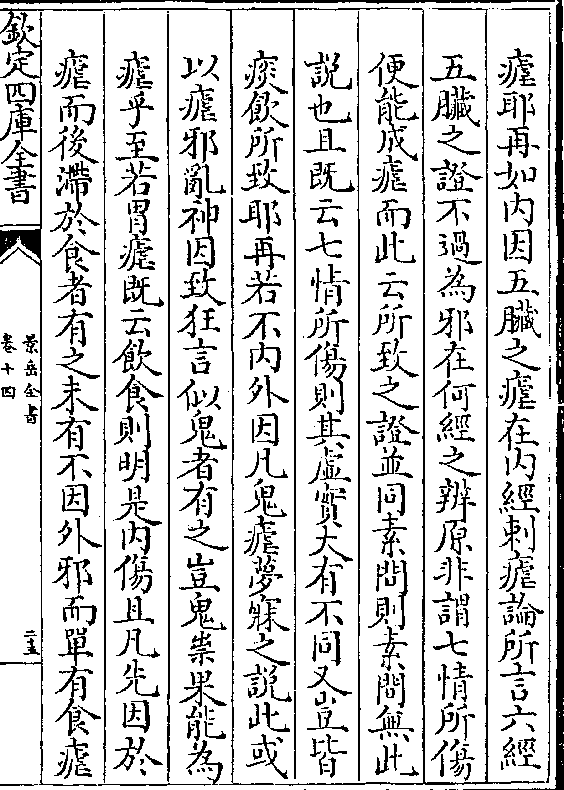 瘧耶再如内因五臟之瘧在内經刺瘧論所言六經
五臟之證不過為邪在何經之辨原非謂七情所傷
便能成瘧而此云所致之證並同素問則素問無此
説也且既云七情所傷則其虛實大有不同又豈皆
痰飲所致耶再若不内外因凡鬼瘧夢寐之説此或
以瘧邪亂神因致狂言似鬼者有之豈鬼祟果能為
瘧乎至若胃瘧既云飲食則明是内傷且凡先因於
瘧而後滯於食者有之未有不因外邪而單有食瘧
欽定四庫全書
景岳全書
卷十四
二十五